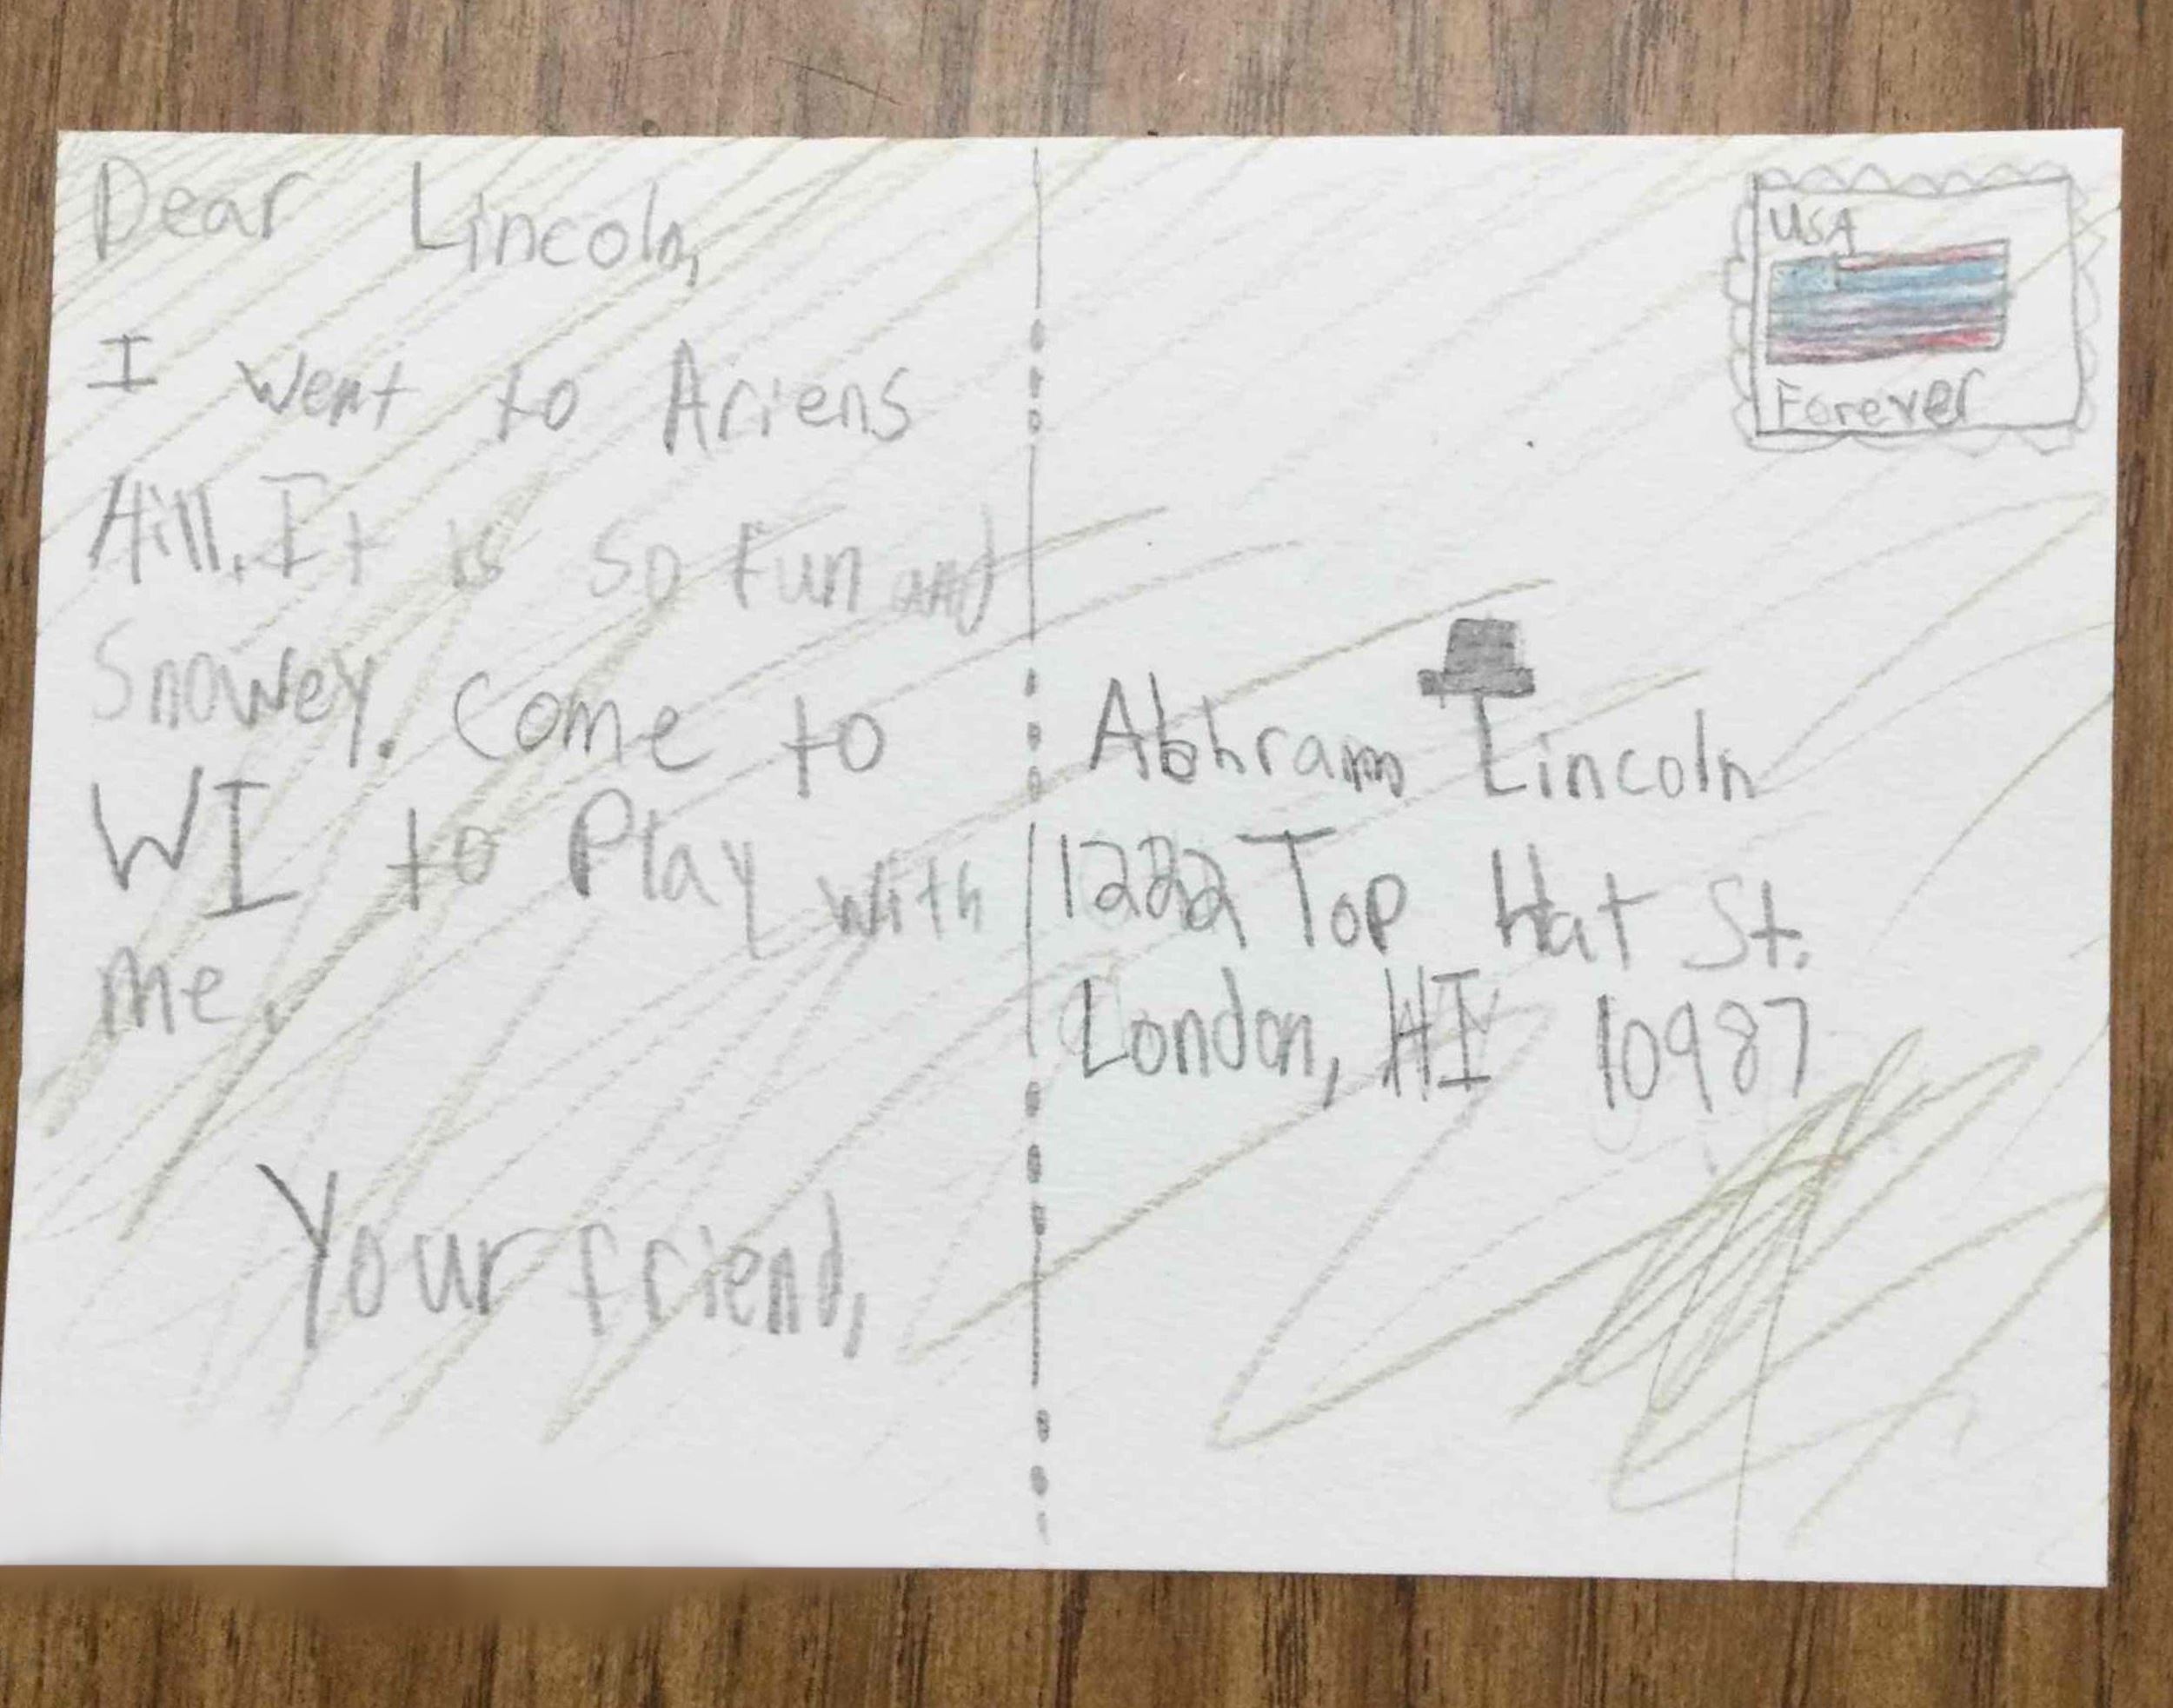 Dear Lincoln,
I went to Ariens
Hill. It is so fun and
Snowey. Come to
WI to Play with
me.
Your friend,
USA
Forever
Abhram Lincoln
1222 Top Hat St.
London, HI 10987